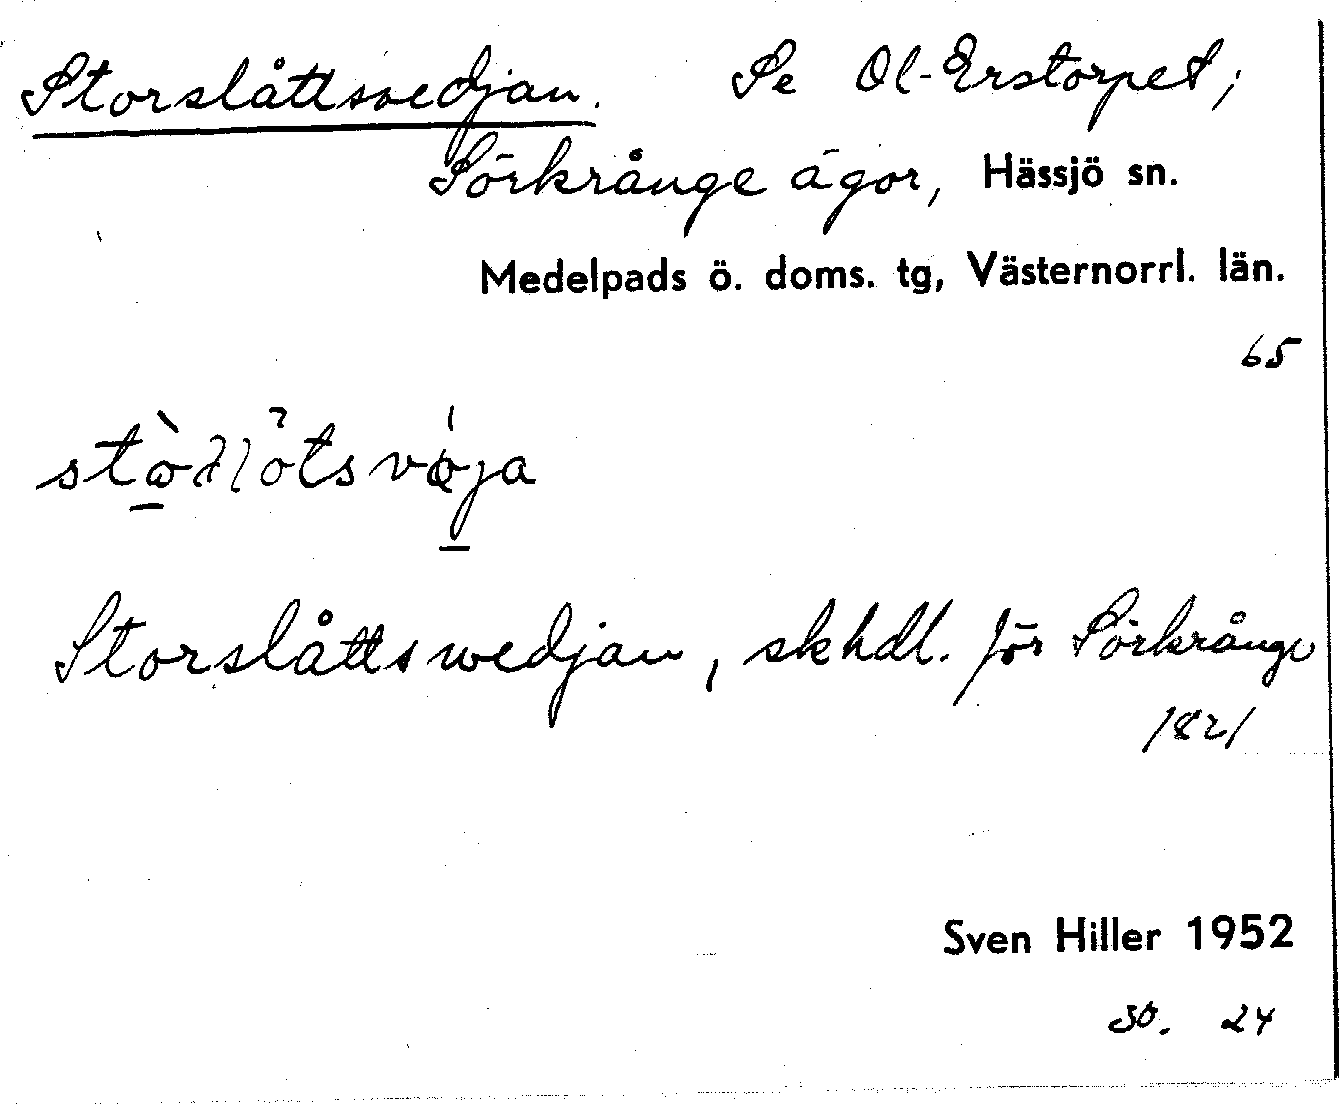 Storslåttsvedjan. Se Ol-Erstorpet;
Sörkrånge ägor, Hässjö sn.
Medelpads ö. doms. tg, Västernorrl. län.
65
Storslåttswedjan, skhdl. för Sörkrånge
1821
Sven Hiller 1952
24